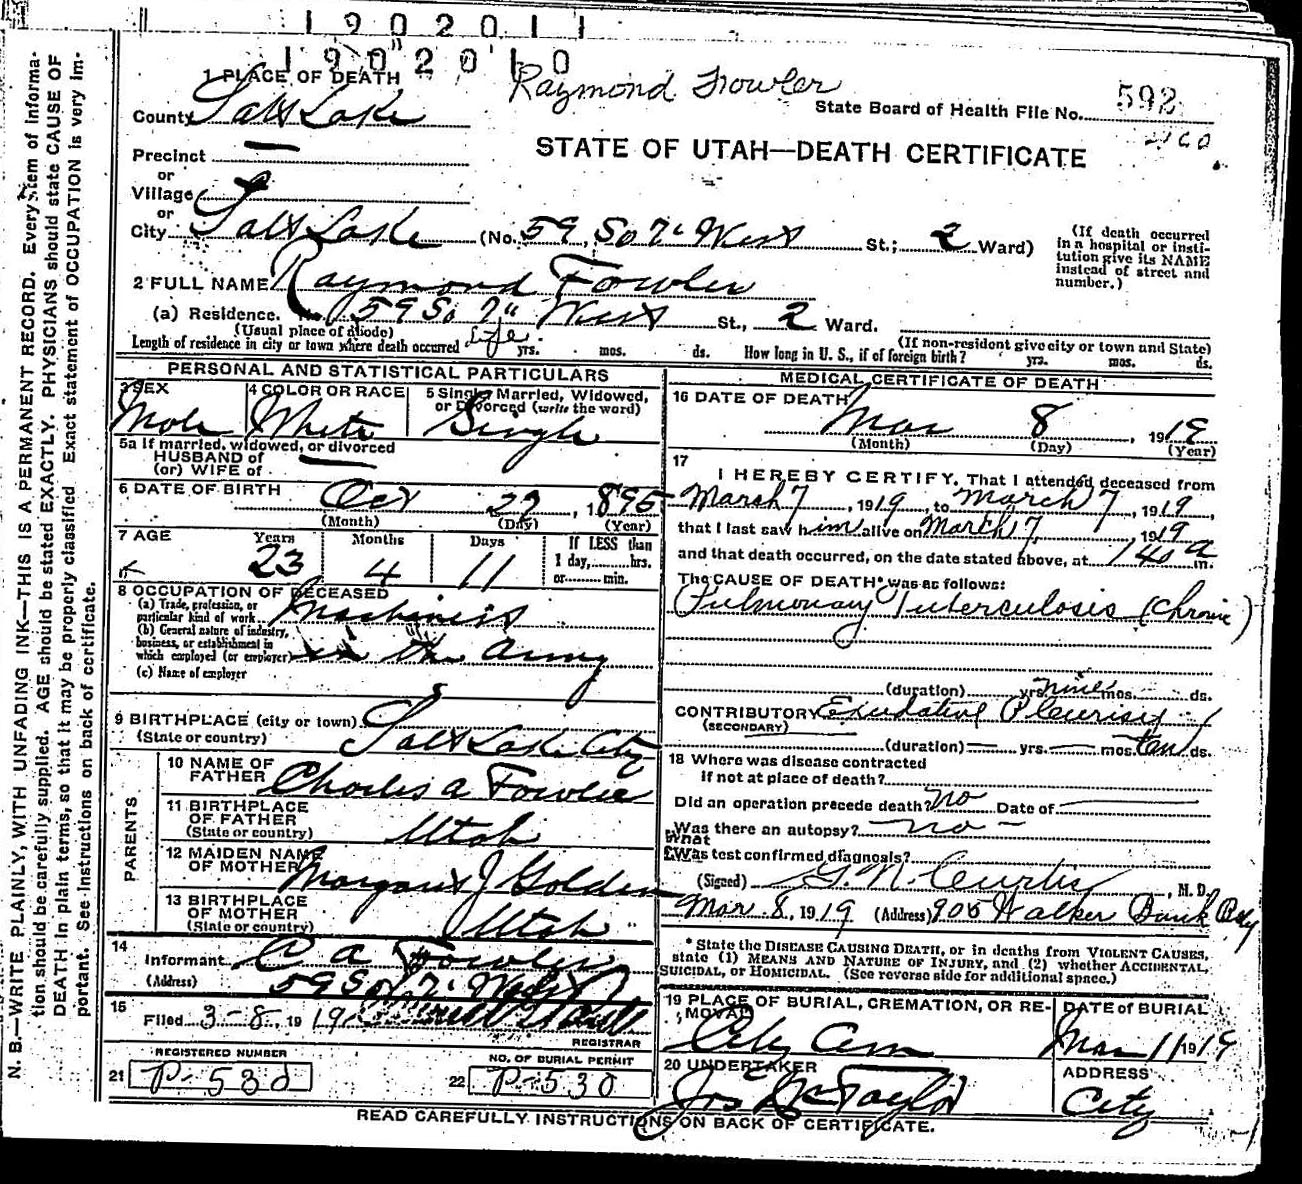 1902011
1902010
Raymond Fowler
State Board of Health File No. 592
2160
1 PLACE OF DEATH
County Salt Lake
STATE OF UTAH—DEATH CERTIFICATE
Precinct —
or
Village
or
City Salt Lake (No. 59 So 7" West St.; 2 Ward)
(If death occurred in a hospital or insti-tution give its NAME instead of street and number.)
2 FULL NAME Raymond Fowler
(a) Residence. No. 59 So 7" West St., 2 Ward.
(Usual place of abode) (If non-resident give city or town and State)
Length of residence in city or town where death occurred life yrs. mos. ds. How long in U. S., if of foreign birth? yrs. mos. ds.
PERSONAL AND STATISTICAL PARTICULARS
3 SEX Male
4 COLOR OR RACE White
5 Single, Married, Widowed, or Divorced (write the word) Single
5a If married, widowed, or divorced
HUSBAND of
(or) WIFE of —
6 DATE OF BIRTH Oct 27, 1895
(Month) (Day) (Year)
7 AGE Years 23 Months 4 Days 11 If LESS than 1 day, hrs. or min.
8 OCCUPATION OF DECEASED
(a) Trade, profession, or particular kind of work Machinist
(b) General nature of industry, business, or establishment in which employed (or employer) in the Army
(c) Name of employer
9 BIRTHPLACE (city or town)
(State or country) Salt Lake City
PARENTS
10 NAME OF FATHER Charles A Fowler
11 BIRTHPLACE OF FATHER (State or country) Utah
12 MAIDEN NAME OF MOTHER Margaret J Golden
13 BIRTHPLACE OF MOTHER (State or country) Utah
14 Informant C A Fowler
(Address) 59 So 7" West
15 Filed 3-8, 1919
REGISTRAR
REGISTERED NUMBER
21 P-530
NO. OF BURIAL PERMIT
22 P-530
MEDICAL CERTIFICATE OF DEATH
16 DATE OF DEATH
Mar 8, 1919
(Month) (Day) (Year)
17 I HEREBY CERTIFY, That I attended deceased from
March 7, 1919, to March 7, 1919,
that I last saw him alive on March 7, 1919
and that death occurred, on the date stated above, at 1 40 a m.
The CAUSE OF DEATH* was as follows:
Pulmonary Tuberculosis (Chronic)
(duration) yrs. nine mos. ds.
CONTRIBUTORY Exudative Pleurisy
(SECONDARY)
(duration) — yrs. — mos. ten ds.
18 Where was disease contracted
if not at place of death?
Did an operation precede death? no Date of —
Was there an autopsy? no —
What
Was test confirmed diagnosis?
(Signed) G. N. Curtis, M. D.
Mar. 8, 1919 (Address) 905 Walker Bank Bldg
* State the DISEASE CAUSING DEATH, or in deaths from VIOLENT CAUSES,
state (1) MEANS AND NATURE OF INJURY, and (2) whether ACCIDENTAL,
SUICIDAL, or HOMICIDAL. (See reverse side for additional space.)
19 PLACE OF BURIAL, CREMATION, OR RE-MOVAL City Cem
DATE of BURIAL Mar 11 1919
20 UNDERTAKER Jos Wm Taylor
ADDRESS City
READ CAREFULLY INSTRUCTIONS ON BACK OF CERTIFICATE.
N. B.—WRITE PLAINLY, WITH UNFADING INK—THIS IS A PERMANENT RECORD. Every item of informa-
tion should be carefully supplied. AGE should be stated EXACTLY. PHYSICIANS should state CAUSE OF
DEATH in plain terms, so that it may be properly classified. Exact statement of OCCUPATION is very im-
portant. See instructions on back of certificate.